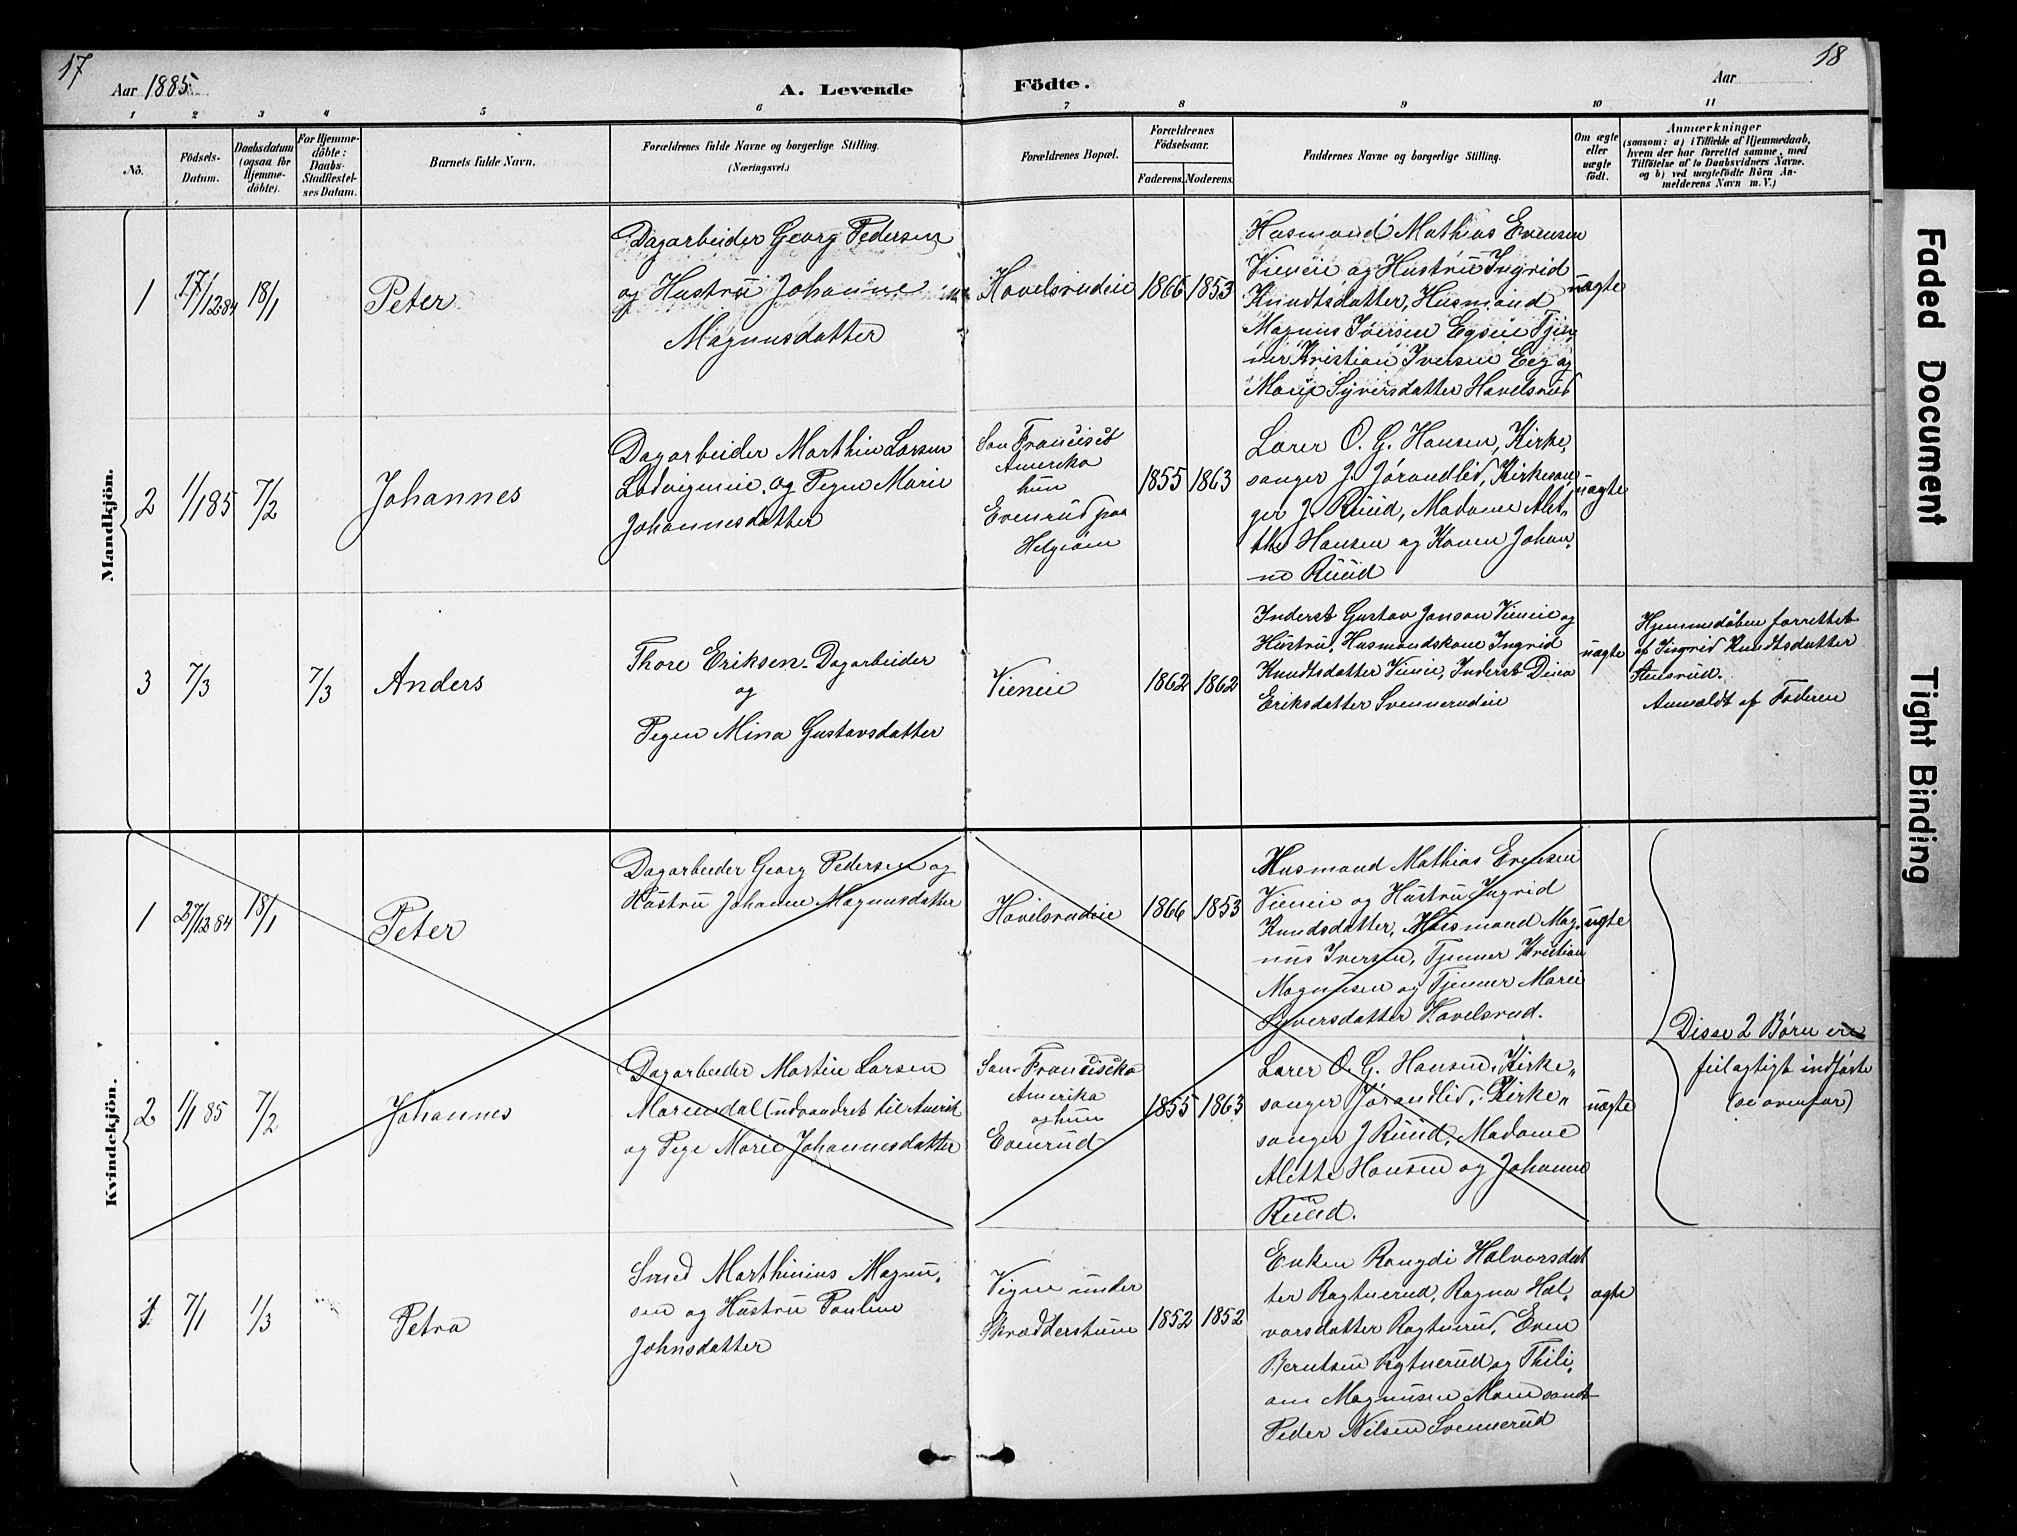 17
18
Aar 1885
A. Levende
Födte.
Aar
1 2 3 4 5 6 7 8 9 10 11
No.
Födsels-
Datum.
Daabsdatum
(ogsaa for
Hjemme-
döbte).
For Hjemme-
döbte:
Daabs-
Stadfæstel-
ses Datum.
Barnets fulde Navn.
Forældrenes fulde Navne og borgerlige Stilling.
(Næringsvei.)
Forældrenes Bopæl.
Forældrenes
Födselsaar.
Faderens.
Moderens.
Faddernes Navne og borgerlige Stilling.
Om ægte
eller
uægte
födt.
Anmærkninger
(saasom: a) i Tilfælde af Hjemmedaab,
hvem der har forrettet samme, med
Tilföielse af to Daabsvidners Navne,
og b) ved uægtefödte Börn An-
melderens Navn m. V.)
Mandkjön.
1
17/12 84
18/1
Peter
Dagarbeider Georg Pedersen
og Hustru Johanne
Magnusdatter
Havelsrudeie
1866
1853
Husmand Mathias Evensen
Vieneie og Hustru Ingrid
Knudtsdatter, Husmand
Magnus Iversen Egseie Tjen„
ner Kristian Iversen Eeg og
Marie Syversdatter Havelsrud
uægte
2
1/1 85
7/2
Johannes
Dagarbeider Marthin Larsen
Ladvigeneie og Pigen Marie
Johannesdatter
San Francisco
Amerika
hun
Evenrud paa
Helgeøen
1855
1863
Lærer O. G. Hansen, Kirke„
sanger J. Jørandlid, Kirkesan„
ger J. Ruud, Madame Alet„
the Hansen og Konen Johan„
ne Ruud
uægte
3
7/3
7/3
Anders
Thore Eriksen Dagarbeider
og
Pigen Mina Gustavsdatter
Vieneie
1862
1862
Inderst Gustav Janson Vieneie og
Hustru, Husmandskone Ingrid
Knudtsdatter Vieneie, Inderst Dina
Eriksdatter Svennerudeie
uægte
Hjemmedåben forrettet
af Ingrid Knudtsdatter
Stensrud.
Anmeldt af Faderen
Kvindekjön.
1
27/12 84
18/1
Peter
Dagarbeider Georg Pedersen og
Hustru Johanne Magnusdatter
Havelsrudeie
1866
1853
Husmand Mathias Evensen
Vieneie og Hustru Ingrid
Knudsdatter, Husmand Mag„
nus Iversen, Tjenner Kristian
Magnusen og Tjenner Marie
Syversdatter Havelsrud.
uægte
2
1/1 85
7/2
Johannes
Dagarbeider Martin Larsen
Mariendal (udvandret til Amerik
og Pige Marie Johannesdatter
San Francisko
Amerika
og hun
Evenrud
1855
1863
Lærer O. G. Hansen, Kirke„
sanger Jørandlid, Kirke„
sanger J Ruud, Madame
Alette Hansen og Johanne
Ruud.
uægte
Disse 2 Børn ere
feilagtigt indførte
(se ovenfor)
1
7/1
1/3
Petra
Smed Marthinius Magnu„
sen og Hustru Pauline
Johnsdatter
Vigne under
Skrædderstuen
1852
1852
Enken Rangdi Halvorsdat
ter Ragtnerud, Ragna Hal„
vorsdatter Ragtnerud, Even
Berntsen Rgtnerud og Thili„
an Magnusen
Peder Nilsen Svennerud
ægte
Faded Document
Tight Binding